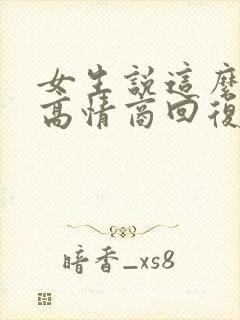 女生說這麼
高情商回復
暗香_xs8